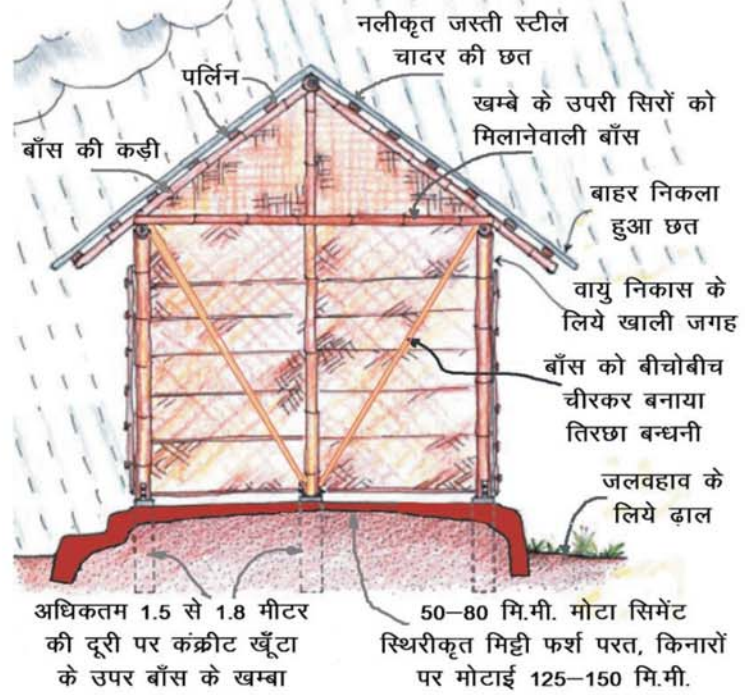 नलीकृत जस्ती स्टील
चादर की छत
पर्लिन
खम्बे के उपरी सिरों को
मिलानेवाली बाँस
बाँस की कड़ी
बाहर निकला
हुआ छत
वायु निकास के
लिये खाली जगह
बाँस को बीचोबीच
चीरकर बनाया
तिरछा बन्धनी
जलवहाव के
लिये ढ़ाल
अधिकतम 1.5 से 1.8 मीटर
की दूरी पर कंक्रीट खूँटा
के उपर बाँस के खम्बा
50–80 मि.मी. मोटा सिमेंट
स्थिरीकृत मिट्टी फर्श परत, किनारों
पर मोटाई 125–150 मि.मी.